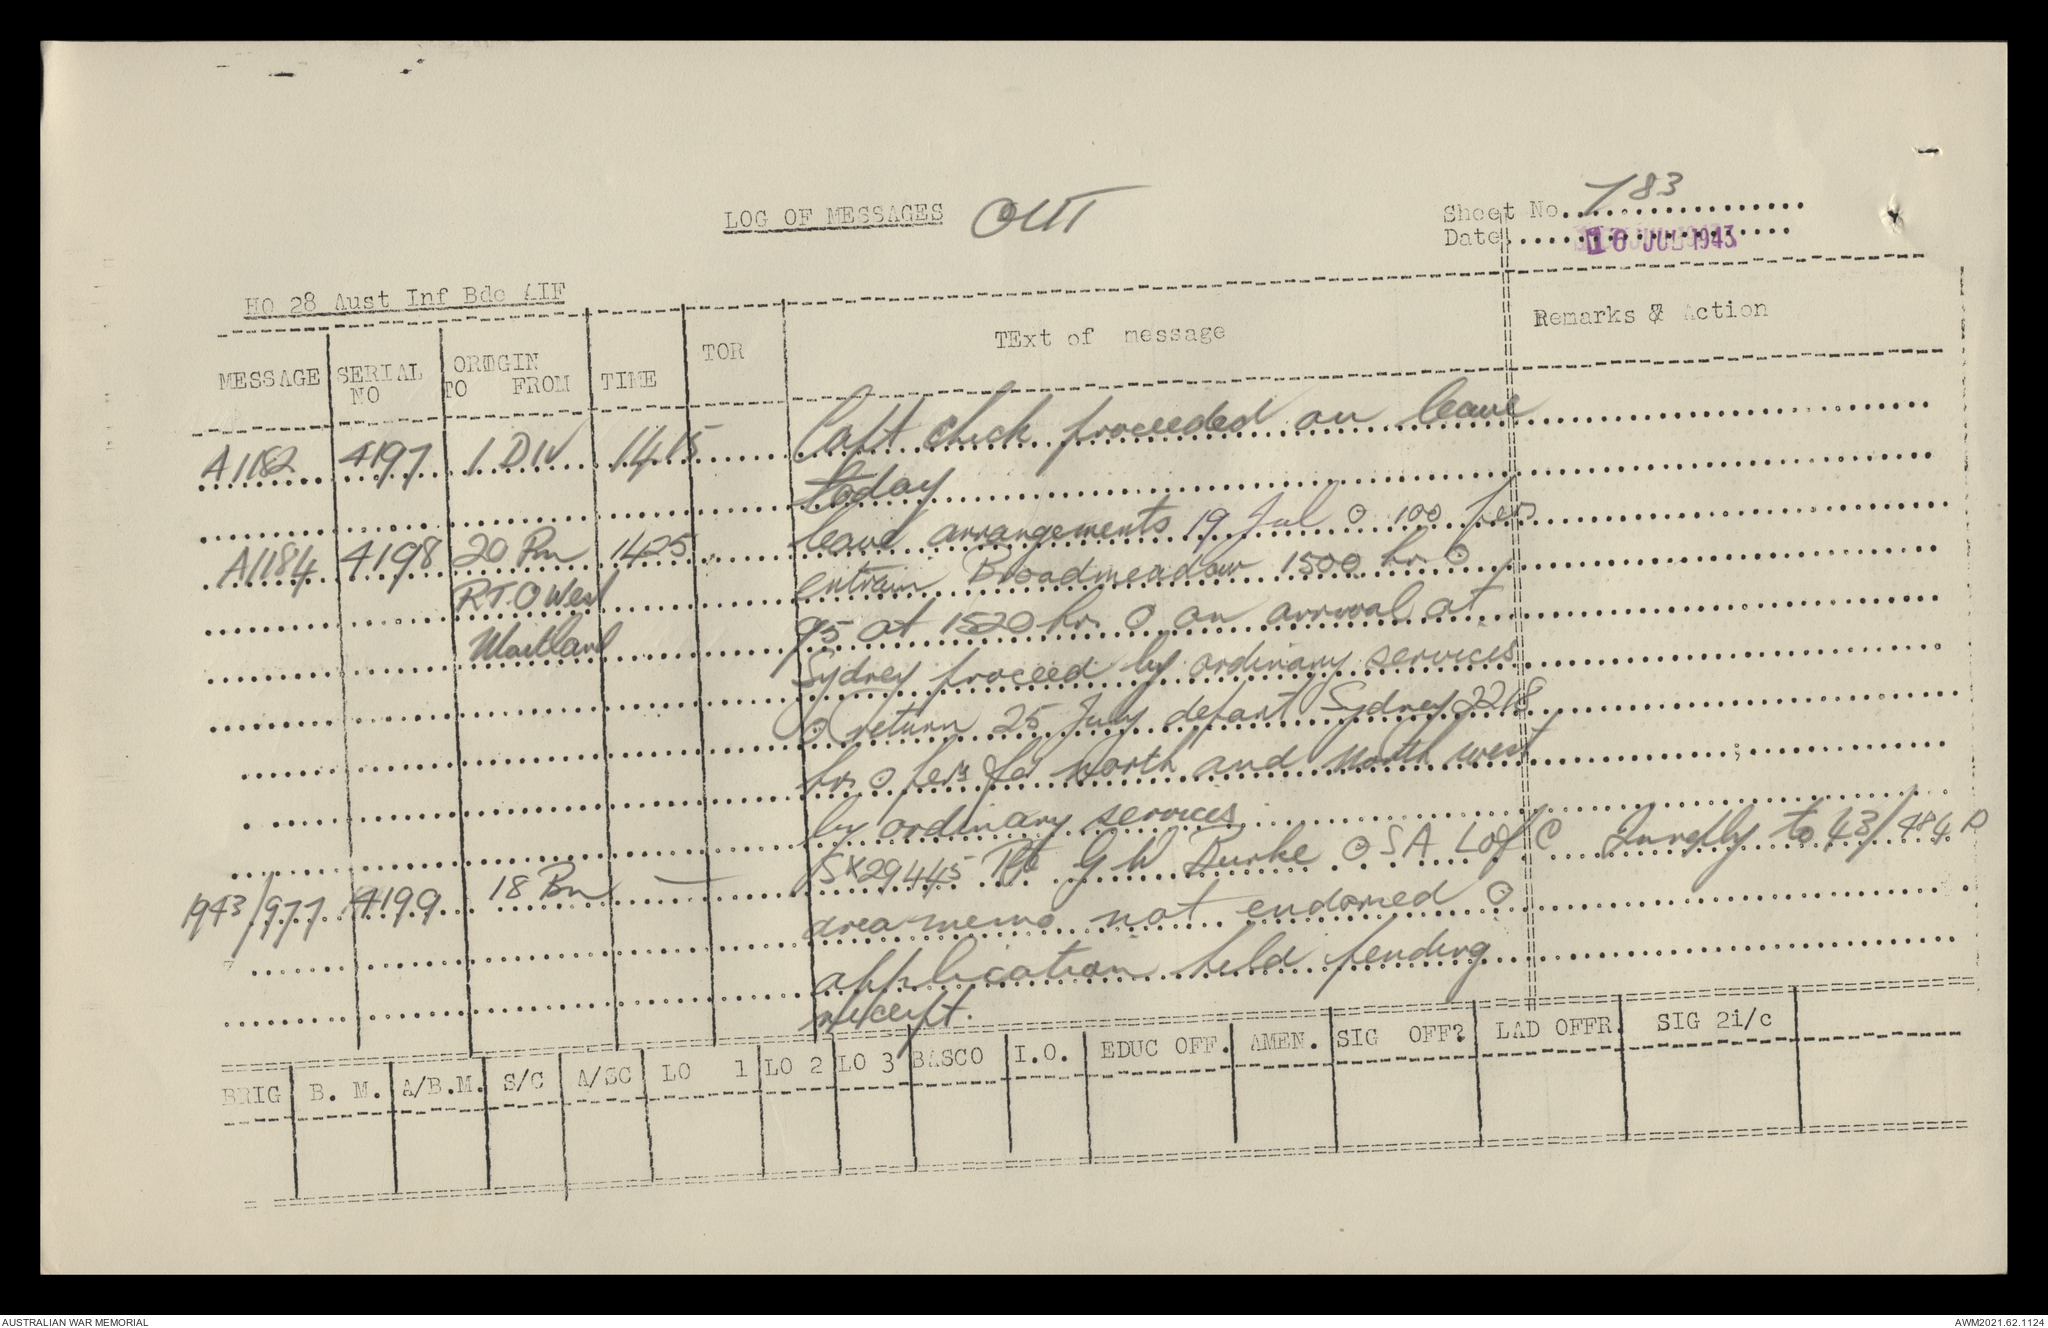 LOG OF MESSAGES OUT
Sheet No. 783
Date 16 JUL 1943
HQ 28 Aust Inf Bde AIF
MESSAGE SERIAL NO ORIGIN TO FROM TIME TOR TExt of message Remarks & Action
A1182 4197 1 DIV 1415 Capt Chick proceeded on leave
today
A1184 4198 20 Bn 1425 leave arrangements 19 Jul ⊙ 100 pers
RTO West entrain Broadmeadow 1500 hrs ⊙
Maitland 95 at 1520 hrs ⊙ on arrival at
Sydney proceed by ordinary services
⊙ return 25 July depart Sydney 2218
hrs ⊙ pers for North and North west
by ordinary services
1943/977 4199 18 Bn — SX29445 Pte G W Burke ⊙ SA L of C In reply to 43/484 P
area memo not endorsed ⊙
application held pending
receipt.
BRIG B. M. A/B.M. S/C A/SC LO 1 LO 2 LO 3 BASCO I.O. EDUC OFF. AMEN. SIG OFF? LAD OFFR. SIG 2i/c
AUSTRALIAN WAR MEMORIAL
AWM2021.62.1124